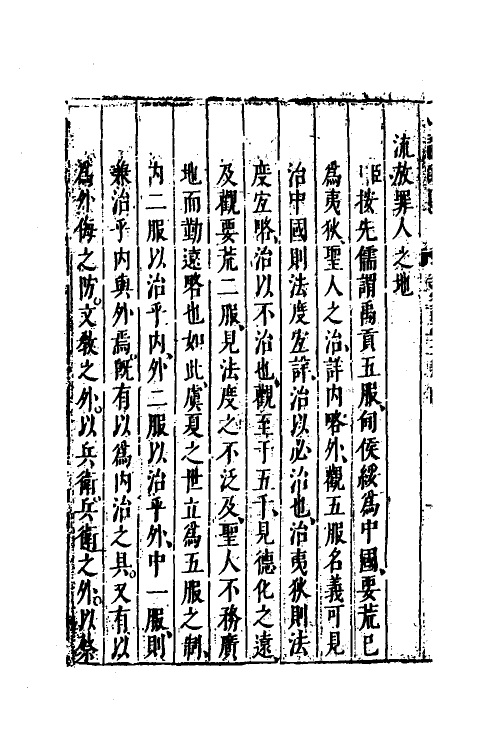 流放罪人之地
按先儒謂禹貢五服甸侯綏為中國要荒已
為夷狄聖人之治詳內略外觀五服名義可見
治中國則法度宜詳治以必治也治夷狄則法
度宜略治以不治也觀至于五千見德化之遠
及觀要荒二服見法度之不泛及聖人不務廣
地而勤遠略也如此虞夏之世立為五服之制
內二服以治乎內外二服以治乎外中一服則
兼治乎內與外焉既有以為內治之具又有以
為外侮之防文教之外以兵衛兵衛之外以蔡